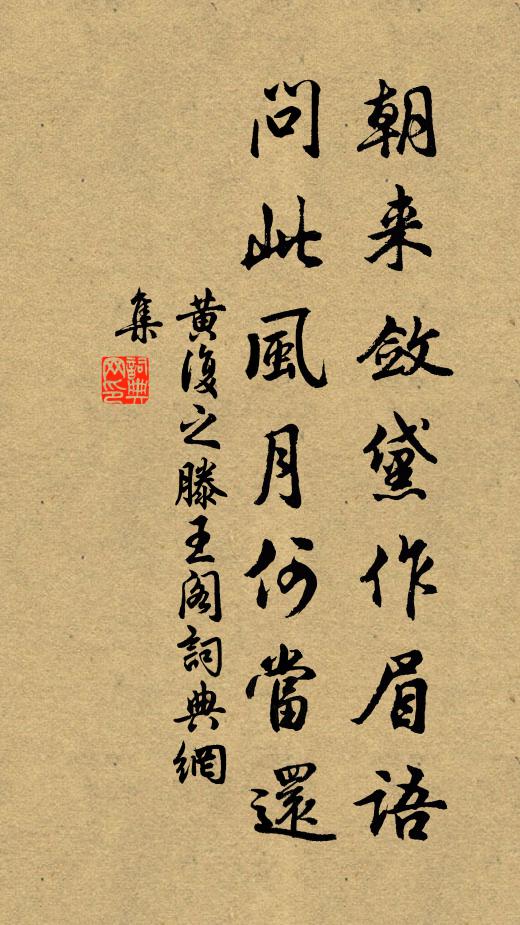 朝来斂黛作眉語
問此風月何當還
黄復之滕王阁詞典網
集
詞典
网印